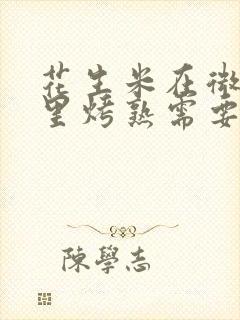 花生米在微
里烤熟需要
陳學志